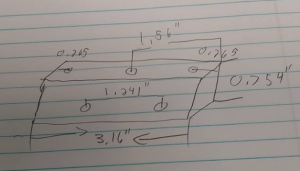 1.56"
0.265 0.265
1.241" 0.254"
3.16"